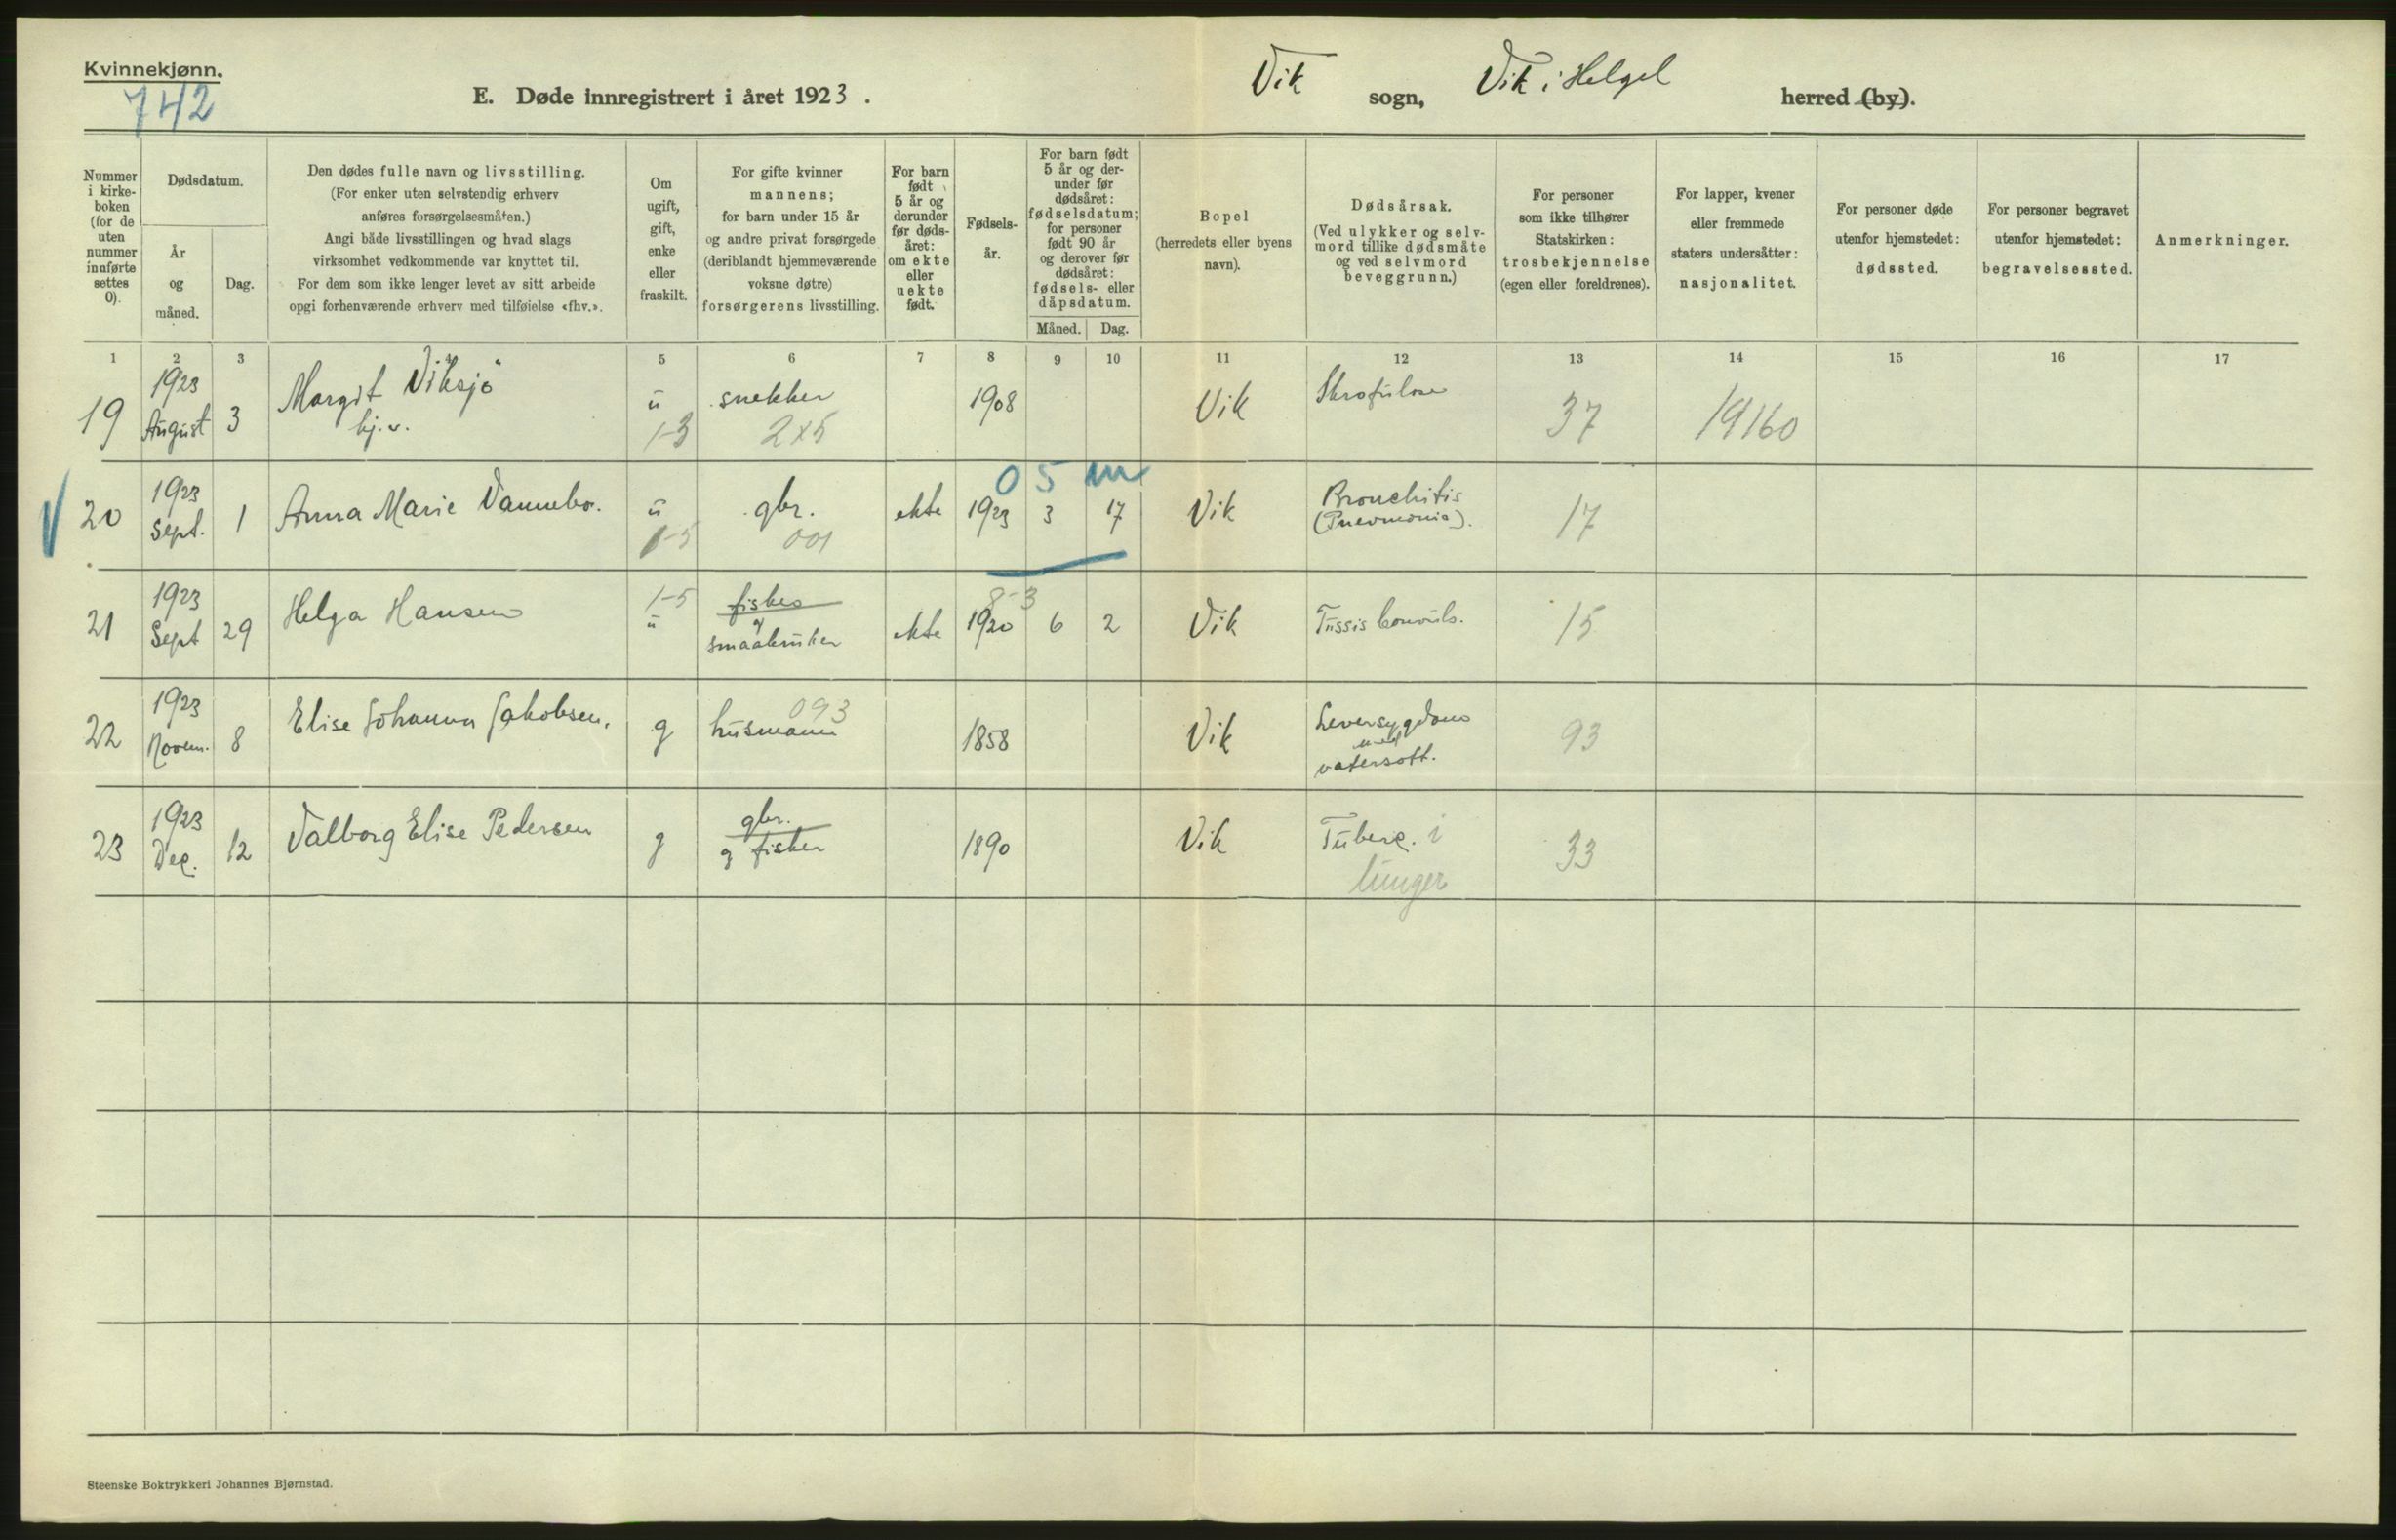 Kvinnekjønn.
742
E. Døde innregistrert i året 1923.
Vik sogn, Vik i Helgel herred (by).
Nummer i kirke-
boken
(for de
uten
nummer
innførte
settes
0).
Dødsdatum.
År
og
måned.
Dag.
Den dødes fulle navn og livsstilling.
(For enker uten selvstendig erhverv
anføres forsørgelsesmåten.)
Angi både livsstillingen og hvad slags
virksomhet vedkommende var knyttet til.
For dem som ikke lenger levet av sitt arbeide
opgi forhenværende erhverv med tilføielse «fhv.».
Om
ugift,
gift,
enke
eller
fraskilt.
For gifte kvinner
mannens;
for barn under 15 år
og andre privat forsørgede
(deriblandt hjemmeværende
voksne døtre)
forsørgerens livsstilling.
For barn
født
5 år og
derunder
før døds-
året:
om ekte
eller
uekte
født.
Fødsels-
år.
For barn født
5 år og der-
under før
dødsåret:
fødselsdatum;
for personer
født 90 år
og derover før
dødsåret:
fødsels- eller
dåpsdatum.
Måned. Dag.
Bopel
(herredets eller byens
navn).
Dødsårsak.
(Ved ulykker og selv-
mord tillike dødsmåte
og ved selvmord
beveggrunn.)
For personer
som ikke tilhører
Statskirken:
trosbekjennelse
(egen eller foreldrenes).
For lapper, kvener
eller fremmede
staters undersåtter:
nasjonalitet.
For personer døde
utenfor hjemstedet:
dødssted.
For personer begravet
utenfor hjemstedet:
begravelsessted.
Anmerkninger.
1 2 3 4 5 6 7 8 9 10 11 12 13 14 15 16 17
19 1923 August 3 Margit Viksjö hj.v. u 1-3 snekker 2x5 1908 Vik Skrofulose 37 19160
05 m
20 1923 Sept. 1 Anna Marie Vannebo. u 1-5 gbr. 001 ekte 1923 3 17 Vik Bronchitis (Pneomonia). 17
21 1923 Sept 29 Helga Hansen 1-5 u fisker og smaabruker ekte 8-3 1920 6 2 Vik Tussis Convuls. 15
22 1923 Novem. 8 Elise Johanna Jakobsen. g husmann 093 1858 Vik Leversygdom med vatersott. 93
23 1923 Dec. 12 Valborg Elise Pedersen g gbr. og fisker 1890 Vik Tuberc. i lunger 33
Steenske Boktrykkeri Johannes Bjørnstad.